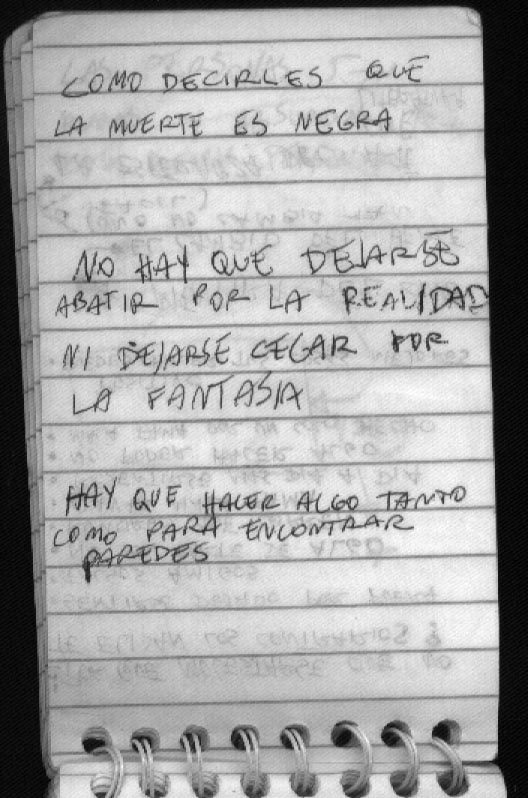 COMO DECIRLES QUE
LA MUERTE ES NEGRA
NO HAY QUE DEJARSE
ABATIR POR LA REALIDAD
NI DEJARSE CEGAR POR
LA FANTASIA
HAY QUE HACER ALGO TANTO
COMO PARA ENCONTRAR
PAREDES